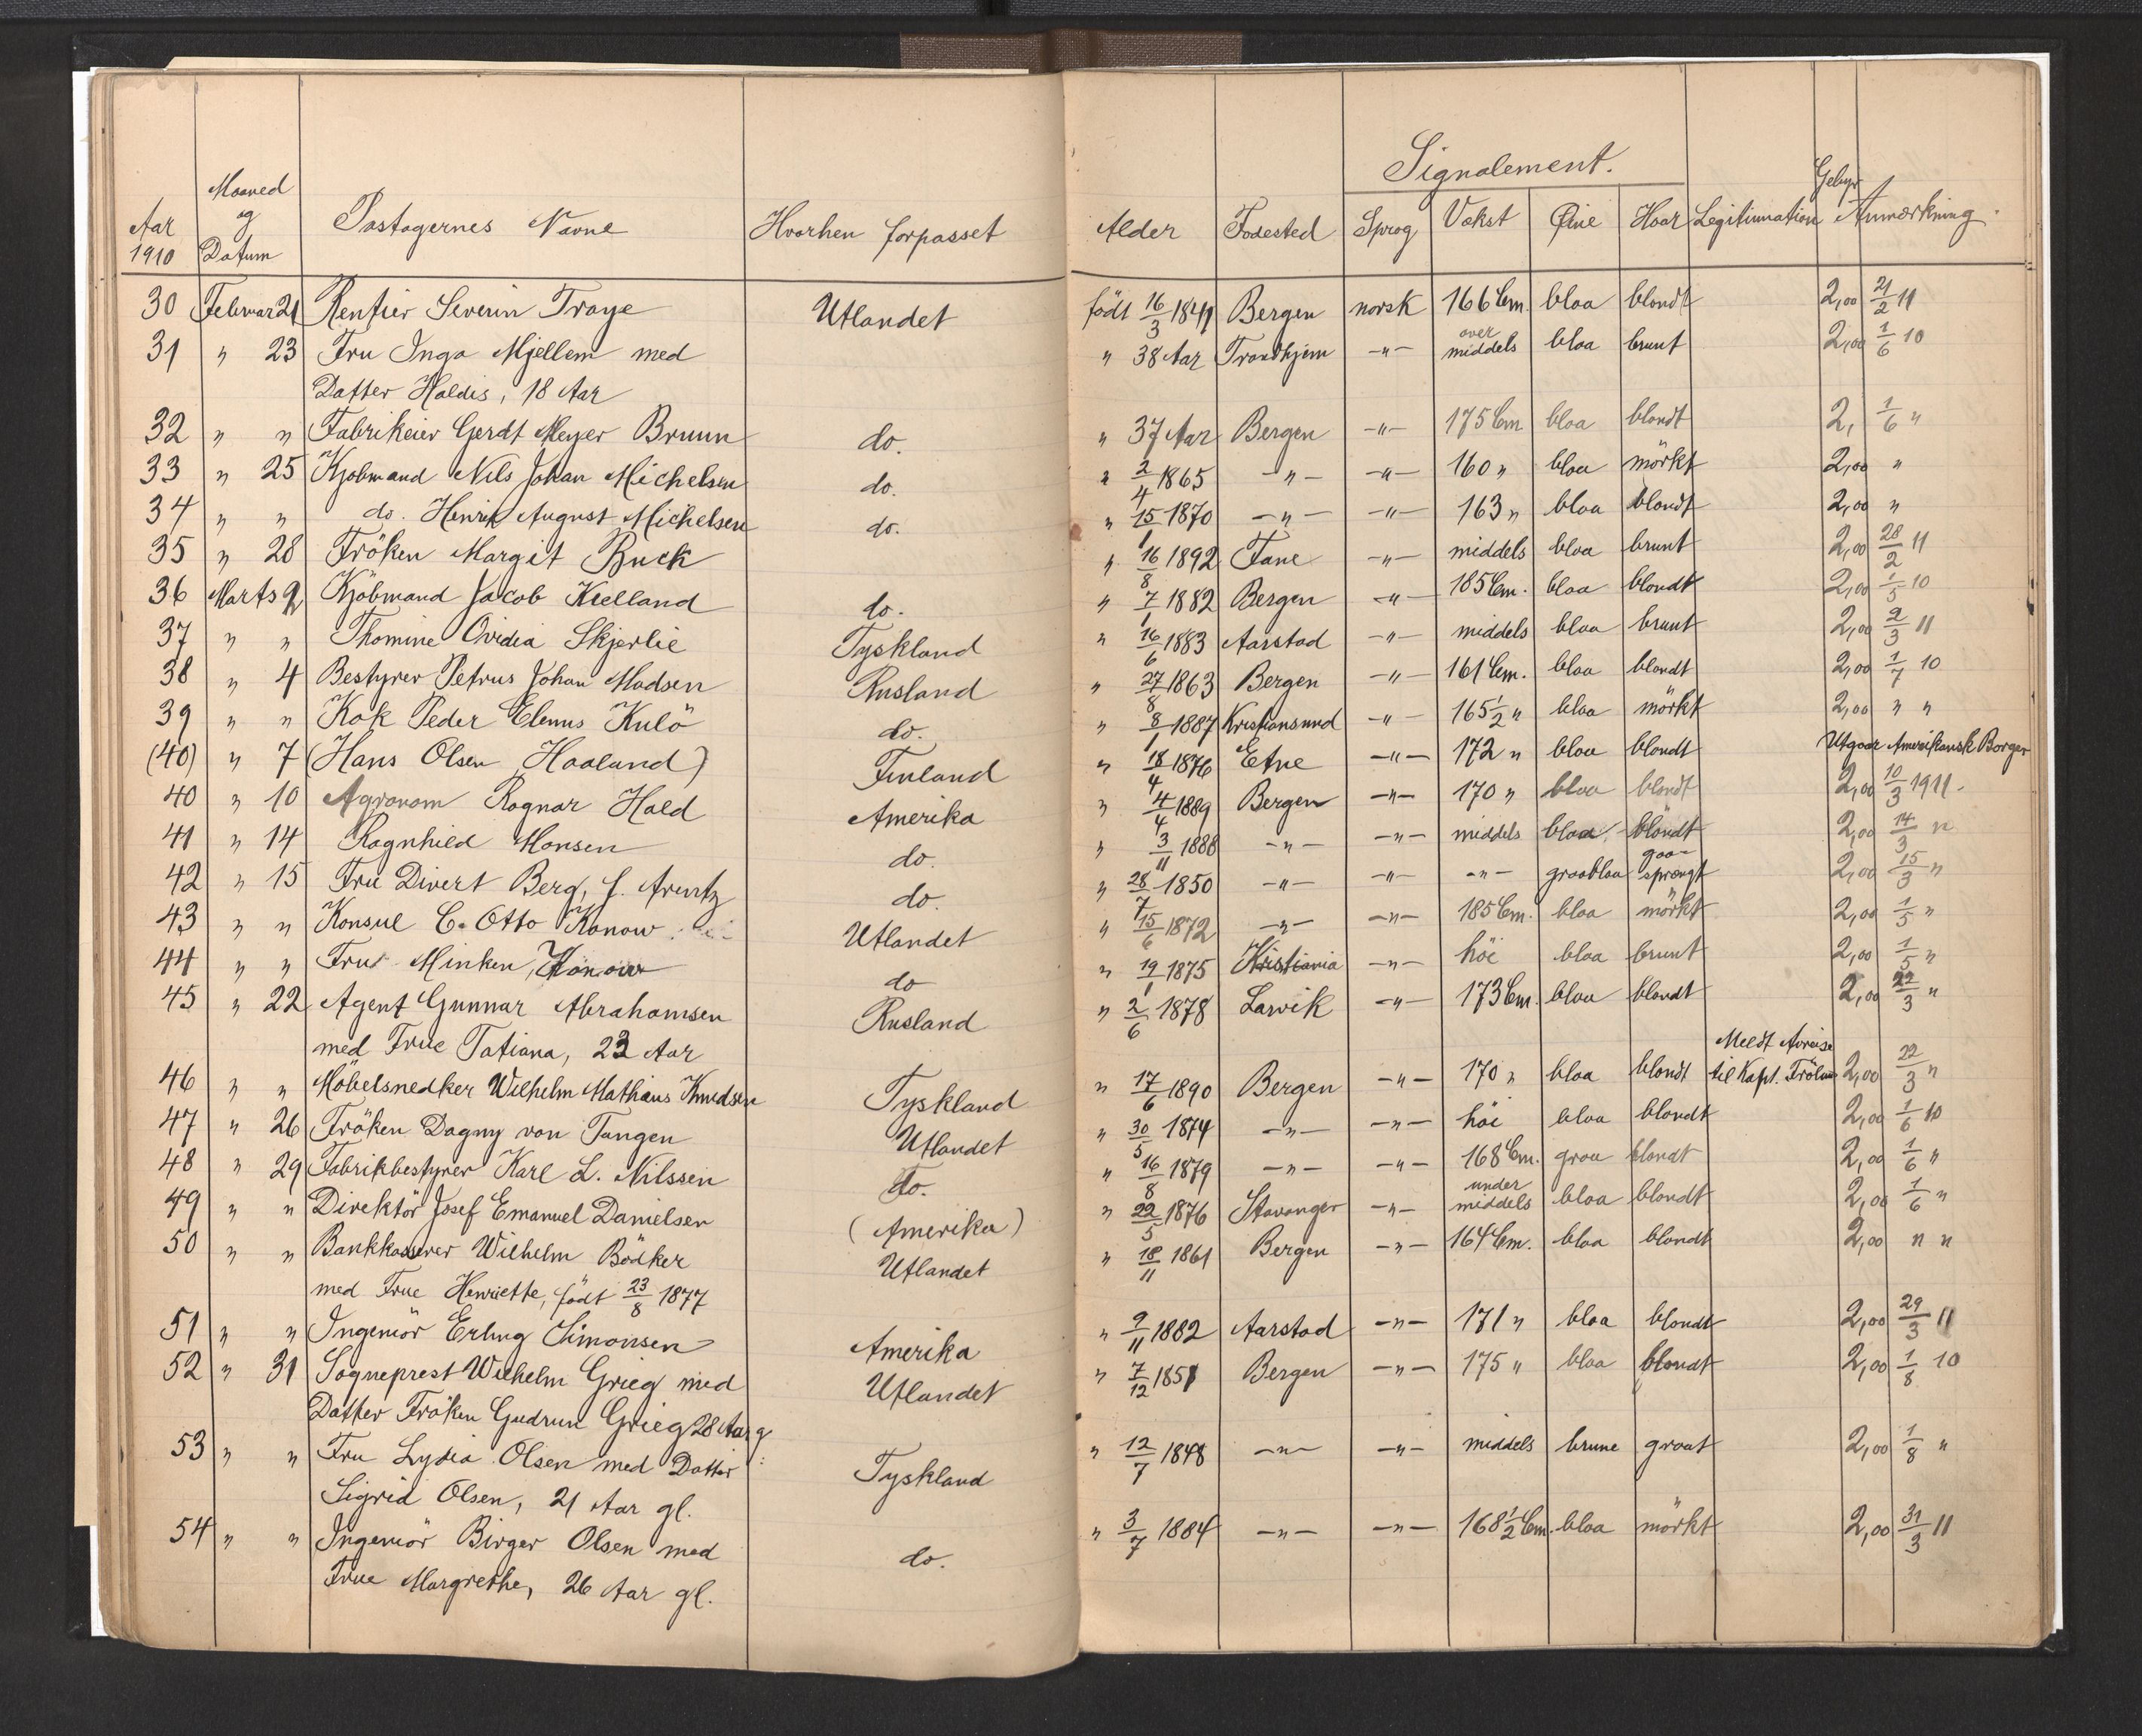 Signalement.
Aar 1910 Maaned og Datum Pastagernes Navne Hvorhen forpasset Alder Fodested Sprog Vekst Øine Haar Legitimation Gebyr Anmærkning.
30 Februar 21 Rentier Severin Troye Utlandet född 16/3 1841 Bergen norsk 166 Cm. blaa blondt 2,00 21/2 11
31 " 23 Fru Inga Mjellem med " 38 Aar Trondhjem -"- over middels blaa brunt 2,00 1/6 10
Datter Haldis, 18 Aar
32 " " Fabrikeier Gerdt Meyer Bruun do. " 37 Aar Bergen -"- 175 Cm blaa blondt 2, 1/6 "
33 " 25 Kjøbmand Nils Johan Michelsen do. " 2/4 1865 -"- -"- 160 " blaa mörkt 2,00 "
34 " " do. Henrik August Michelsen do. " 15/1 1870 -"- -"- 163 " blaa blondt 2,00 "
35 " 28 Fröken Margit Buck " 16/8 1892 Fane -"- middels blaa brunt 2,00 28/2 11
36 Marts 2 Kjöbmand Jacob Kielland do. " 7/1 1882 Bergen -"- 185 Cm. blaa blondt 2,00 1/5 10
37 " " Thomine Ovidia Skjerlie Tyskland " 16/6 1883 Aarstad -"- middels blaa brunt 2,00 2/3 11
38 " 4 Bestyrer Petrus Johan Madsen Rusland " 27/8 1863 Bergen -"- 161 Cm. blaa blondt 2,00 1/7 10
39 " " Kok Peder Elenus Kulö do. " 8/1 1887 Kristiansund -"- 165 1/2 " blaa mörkt 2,00 " "
(40) " 7 (Hans Olsen Haaland) Finland " 18/4 1876 Etne -"- 172 " blaa blondt Utgaar Amerikansk Borger
40 " 10 Agronom Ragnar Hald Amerika " 4/4 1889 Bergen -"- 170 " blaa blondt 2,00 10/3 1911.
41 " 14 Ragnhild Monsen do. " 3/11 1888 -"- -"- middels blaa blondt 2,00 14/3 "
42 " 15 Fru Divert Berg, f. Arentz do. " 28/7 1850 -"- -"- -"- graablaa graa- sprængt 2,00 15/3 "
43 " " Konsul C. Otto Konow Utlandet " 15/6 1872 -"- -"- 185 Cm. blaa mörkt 2,00 1/5 "
44 " " Fru Minken Konow do " 19/1 1875 Kristiania -"- höi blaa brunt 2,00 1/5 "
45 " 22 Agent Gunnar Abrahamsen Rusland " 2/6 1878 Larvik -"- 173 Cm. blaa blondt 2,00 22/3 "
med Frue Tatiana, 23 Aar
46 " " Möbelsnedker Wilhelm Mathias Knudsen Tyskland " 17/6 1890 Bergen -"- 170 " blaa blondt Meldt Avreise til Kapt. 2,00 22/3 "
47 " 26 Fröken Dagny von Tangen Utlandet " 30/5 1874 -"- -"- höi blaa blondt 2,00 1/6 10
48 " 29 Fabrikbestyrer Karl L. Nilssen do. " 16/8 1879 -"- -"- 168 Cm. graa blondt 2,00 1/6 "
49 " " Direktör Josef Emanuel Danielsen (Amerika) " 22/5 1876 Stavanger -"- under middels blaa blondt 2,00 1/6 "
50 " " Bankkasserer Wilhelm Bödker Utlandet " 18/11 1861 Bergen -"- 164 Cm. blaa blondt 2,00 " "
med Frue Henriette, född 23/8 1877
51 " " Ingeniör Erling Simonsen Amerika " 9/11 1882 Aarstad -"- 171 " blaa blondt 2,00 29/3 11
52 " 31 Sogneprest Wilhelm Grieg med Utlandet " 7/12 1851 Bergen -"- 175 " blaa blondt 2,00 1/8 10
Datter Fröken Gudrun Grieg 28 Aar g.
53 " " Fru Lydia Olsen med Datter Tyskland " 12/7 1848 -"- -"- middels brune graat 2,00 1/8 "
Sigrid Olsen, 21 Aar gl.
54 " " Ingeniör Birger Olsen med do. " 3/7 1884 -"- -"- 168 1/2 Cm. blaa mörkt 2,00 31/3 11
Frue Margrethe, 26 Aar gl.